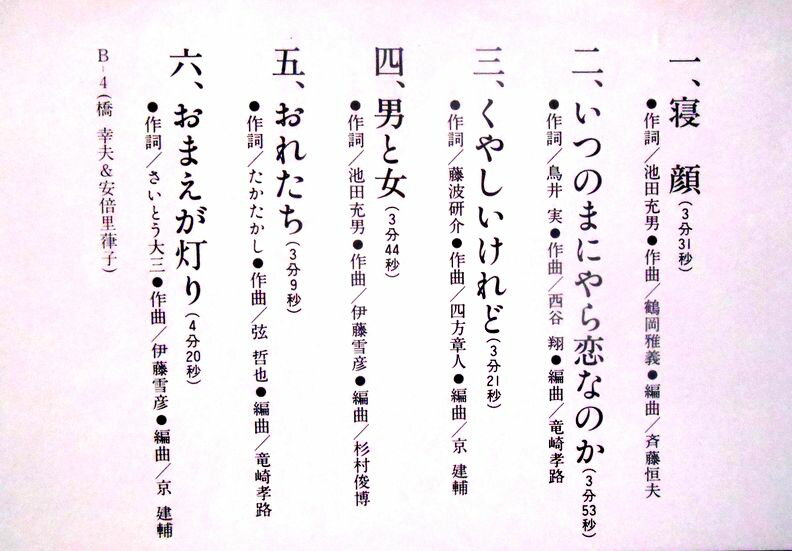 一、寝　顔(3分31秒)
●作詞／池田充男●作曲／鶴岡雅義●編曲／斉藤恒夫
二、いつのまにやら恋なのか(3分53秒)
●作詞／鳥井　実●作曲／西谷　翔●編曲／竜崎孝路
三、くやしいけれど(3分21秒)
●作詞／藤波研介●作曲／四方章人●編曲／京　建輔
四、男と女(3分44秒)
●作詞／池田充男●作曲／伊藤雪彦●編曲／杉村俊博
五、おれたち(3分9秒)
●作詞／たかたかし●作曲／弦　哲也●編曲／竜崎孝路
六、おまえが灯り(4分20秒)
●作詞／さいとう大三●作曲／伊藤雪彦●編曲／京　建輔
B-4(橋　幸夫＆安倍里葎子)